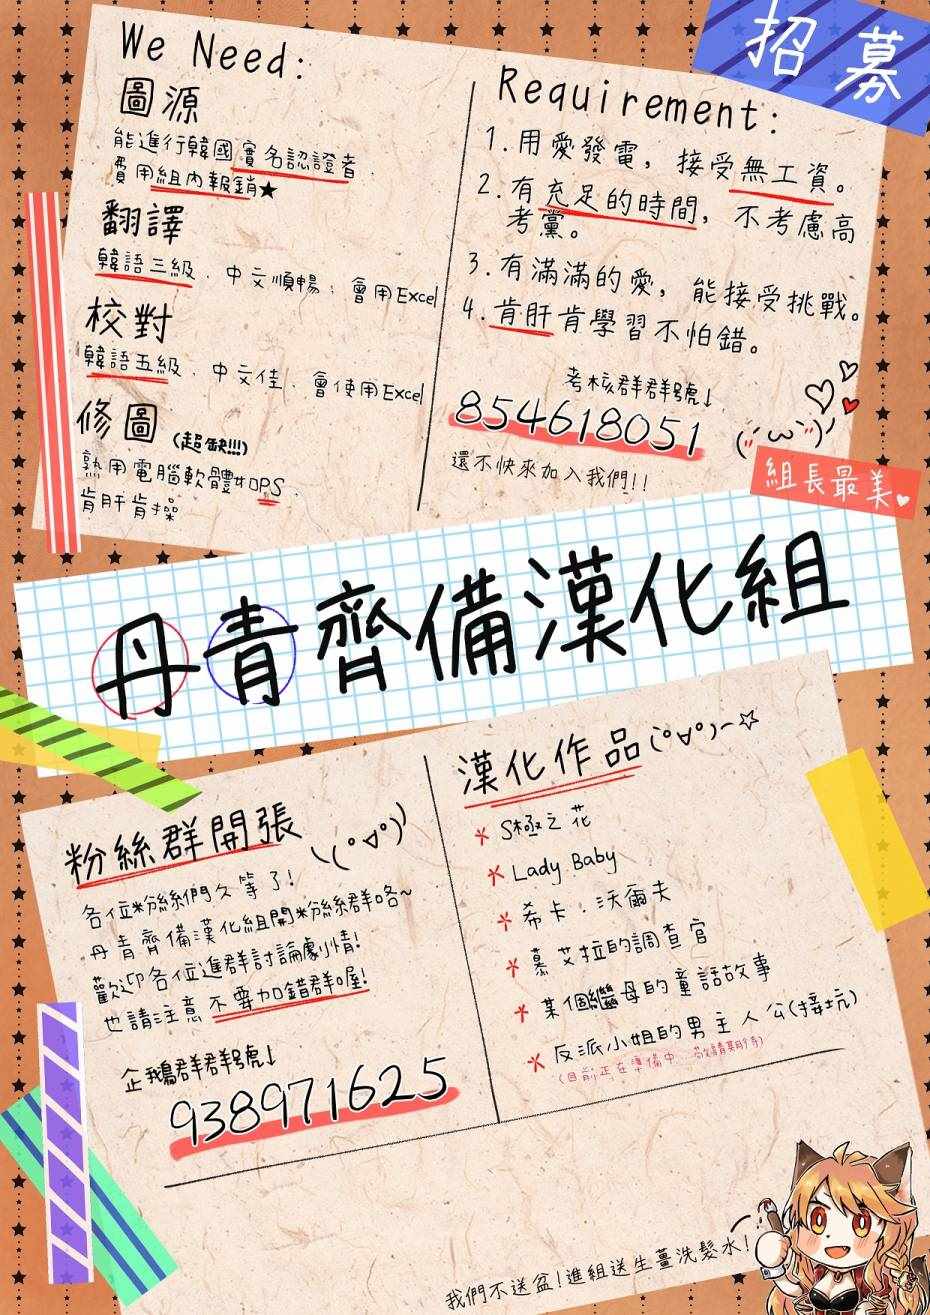 招募
We Need:
圖源
能進行韓國實名認證者.
費用組內報銷★
翻譯
韓語三級、中文順暢、會用Excel
校對
韓語五級、中文佳、會使用Excel
修圖 (超缺!!!)
熟用電腦軟體如PS、
肯肝肯操
Requirement:
1.用愛發電，接受無工資。
2.有充足的時間，不考慮高
考黨。
3.有滿滿的愛，能接受挑戰。
4.肯肝肯學習不怕錯。
考核群群號↓
854618051
還不快來加入我們!!
組長最美
丹青齊備漢化組
粉絲群開張
各位粉絲們久等了!
丹青齊備漢化組開粉絲群咯~
歡迎各位進群討論劇情!
也請注意不要加錯群喔!
企鵝群群號↓
938971625
漢化作品(°∀°)~☆
S極之花
Lady Baby
希卡·沃爾夫
慕艾拉的調查官
某個繼母的童話故事
反派小姐的男主人公(接坑)
(目前正在準備中...敬請期待)
我們不送盆!進組送生薑洗髮水!